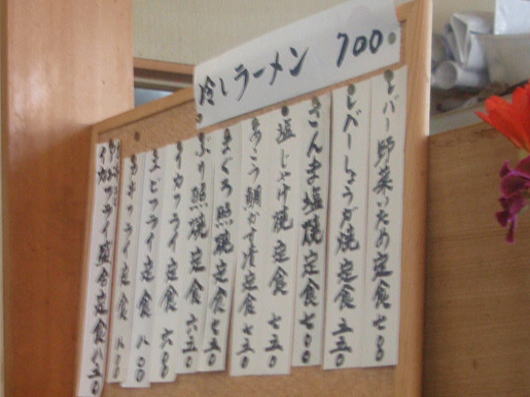 冷しラーメン 700
レバー野菜いため定食 七〇〇
レバーしょうが焼定食 五五〇
さんま塩焼定食 七〇〇
塩じゃけ焼定食 七五〇
まっこう鯛かす漬定食 七五〇
まぐろ照焼定食 七五〇
ぶり照焼定食 六五〇
イカフライ定食 六〇〇
エビフライ定食 八〇〇
カキフライ定食 八〇〇